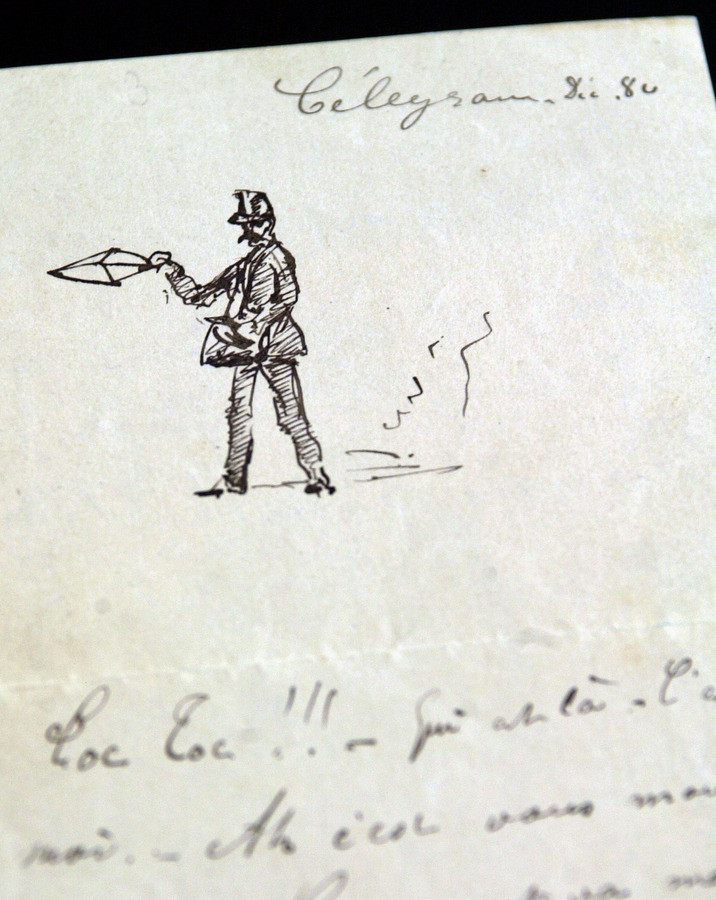 Télégram. Dic. 80
Toc Toc !!! — Qui est là - C'e
moi. — Ah c'est vous mon